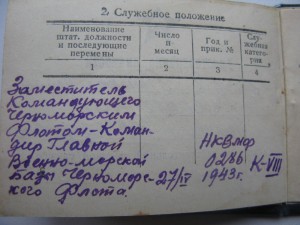 2. Служебное положение
Наименование штат. должности и последующие перемены
Число и месяц
Год и прик. №
Служебная категория
1 2 3 4
Заместитель
Командующего
Черноморским
Флотом-Коман-
дир Главной
Военно-морской
Базы Черноморс-
кого Флота.
27/IV
НКВМФ
0286
1943г.
К-VIII